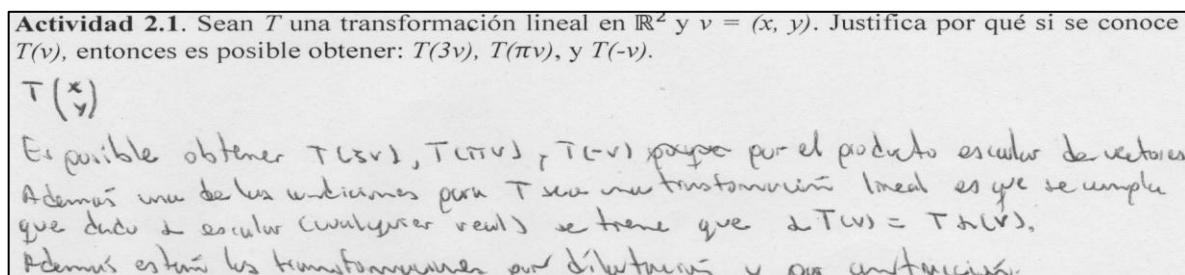 Actividad 2.1. Sean T una transformación lineal en ℝ² y v = (x, y). Justifica por qué si se conoce
T(v), entonces es posible obtener: T(3v), T(πv), y T(-v).
T (x y)
Es posible obtener T(3v), T(πv), T(-v) por el producto escalar de vectores
Además una de las condiciones para T sea una transformación lineal es que se cumpla
que dado α escalar (cualquier real) se tiene que α T(v) = T α(v).
Además están las transformaciones por dilatación y por contracción.